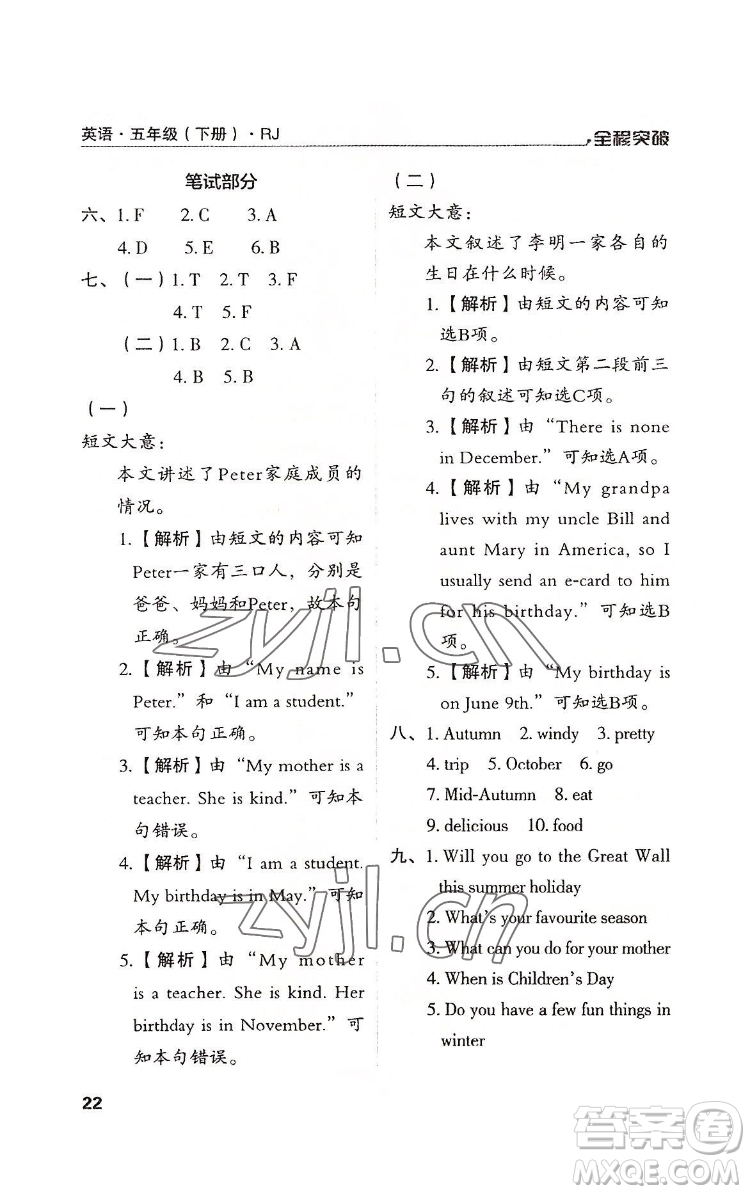 英语·五年级(下册)·RJ
全程突破
笔试部分
六、1. F 2. C 3. A
4. D 5. E 6. B
七、(一)1. T 2. T 3. F
4. T 5. F
(二)1. B 2. C 3. A
4. B 5. B
(一)
短文大意:
本文讲述了Peter家庭成员的
情况。
1.【解析】由短文的内容可知
Peter一家有三口人，分别是
爸爸、妈妈和Peter，故本句
正确。
2.【解析】由“My name is
Peter.”和“I am a student.”
可知本句正确。
3.【解析】由“My mother is a
teacher. She is kind.”可知本
句错误。
4.【解析】由“I am a student.
My birthday is in May.”可知
本句正确。
5.【解析】由“My mother
is a teacher. She is kind. Her
birthday is in November.”可
知本句错误。
(二)
短文大意:
本文叙述了李明一家各自的
生日在什么时候。
1.【解析】由短文的内容可知
选B项。
2.【解析】由短文第二段前三
句的叙述可知选C项。
3.【解析】由“There is none
in December.”可知选A项。
4.【解析】由“My grandpa
lives with my uncle Bill and
aunt Mary in America, so I
usually send an e-card to him
for his birthday.”可知选B
项。
5.【解析】由“My birthday is
on June 9th.”可知选B项。
八、1. Autumn 2. windy 3. pretty
4. trip 5. October 6. go
7. Mid-Autumn 8. eat
9. delicious 10. food
九、1. Will you go to the Great Wall
this summer holiday
2. What's your favourite season
3. What can you do for your mother
4. When is Children's Day
5. Do you have a few fun things in
winter
22
zyjl.cn
zyjl.cn
答案圈
MXQE.COM